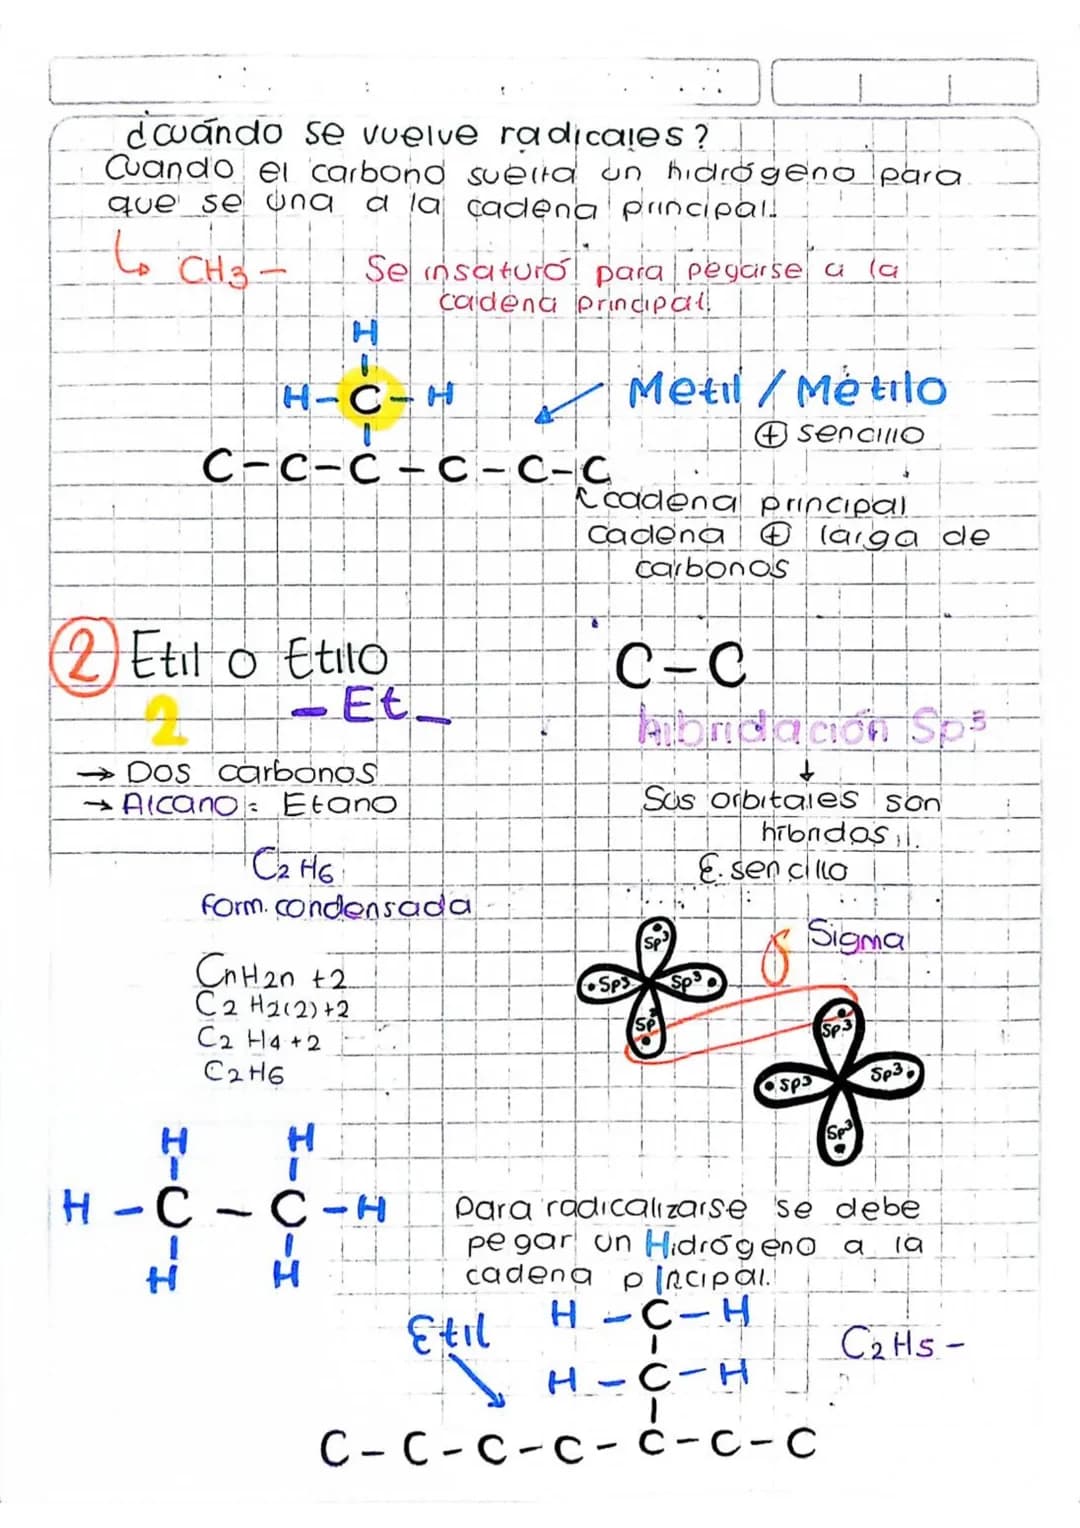 ¿cuándo se vuelve radicales?
Cuando el carbono suelta un hidrógeno para
que se una a la cadena principal.
↳ CH3 -
Se insaturó para pegarse a la
cadena principal.
H
H-C-H
Metil / Métilo
⊕ sencillo
C-C-C-C-C-C
cadena principal
cadena ⊕ larga de
carbonos
2 Etil o Etilo
2
- Et -
→ Dos carbonos
→ Alcano: Etano
C2H6
form. condensada
CnH2n +2
C2 H2(2)+2
C2 H4 +2
C2H6
C-C
hibridación Sp3
↓
Sus orbitales son
híbridos.
E. sencillo
Sigma
Sp3
Sp3 Sp3
Sp3
Sp3
Sp3 Sp3
Sp3
H H
H - C - C - H
H H
Para radicalizarse se debe
pegar un Hidrógeno a la
cadena principal.
Etil
H - C - H
H - C - H
C2H5 -
C-C-C-C-C-C-C